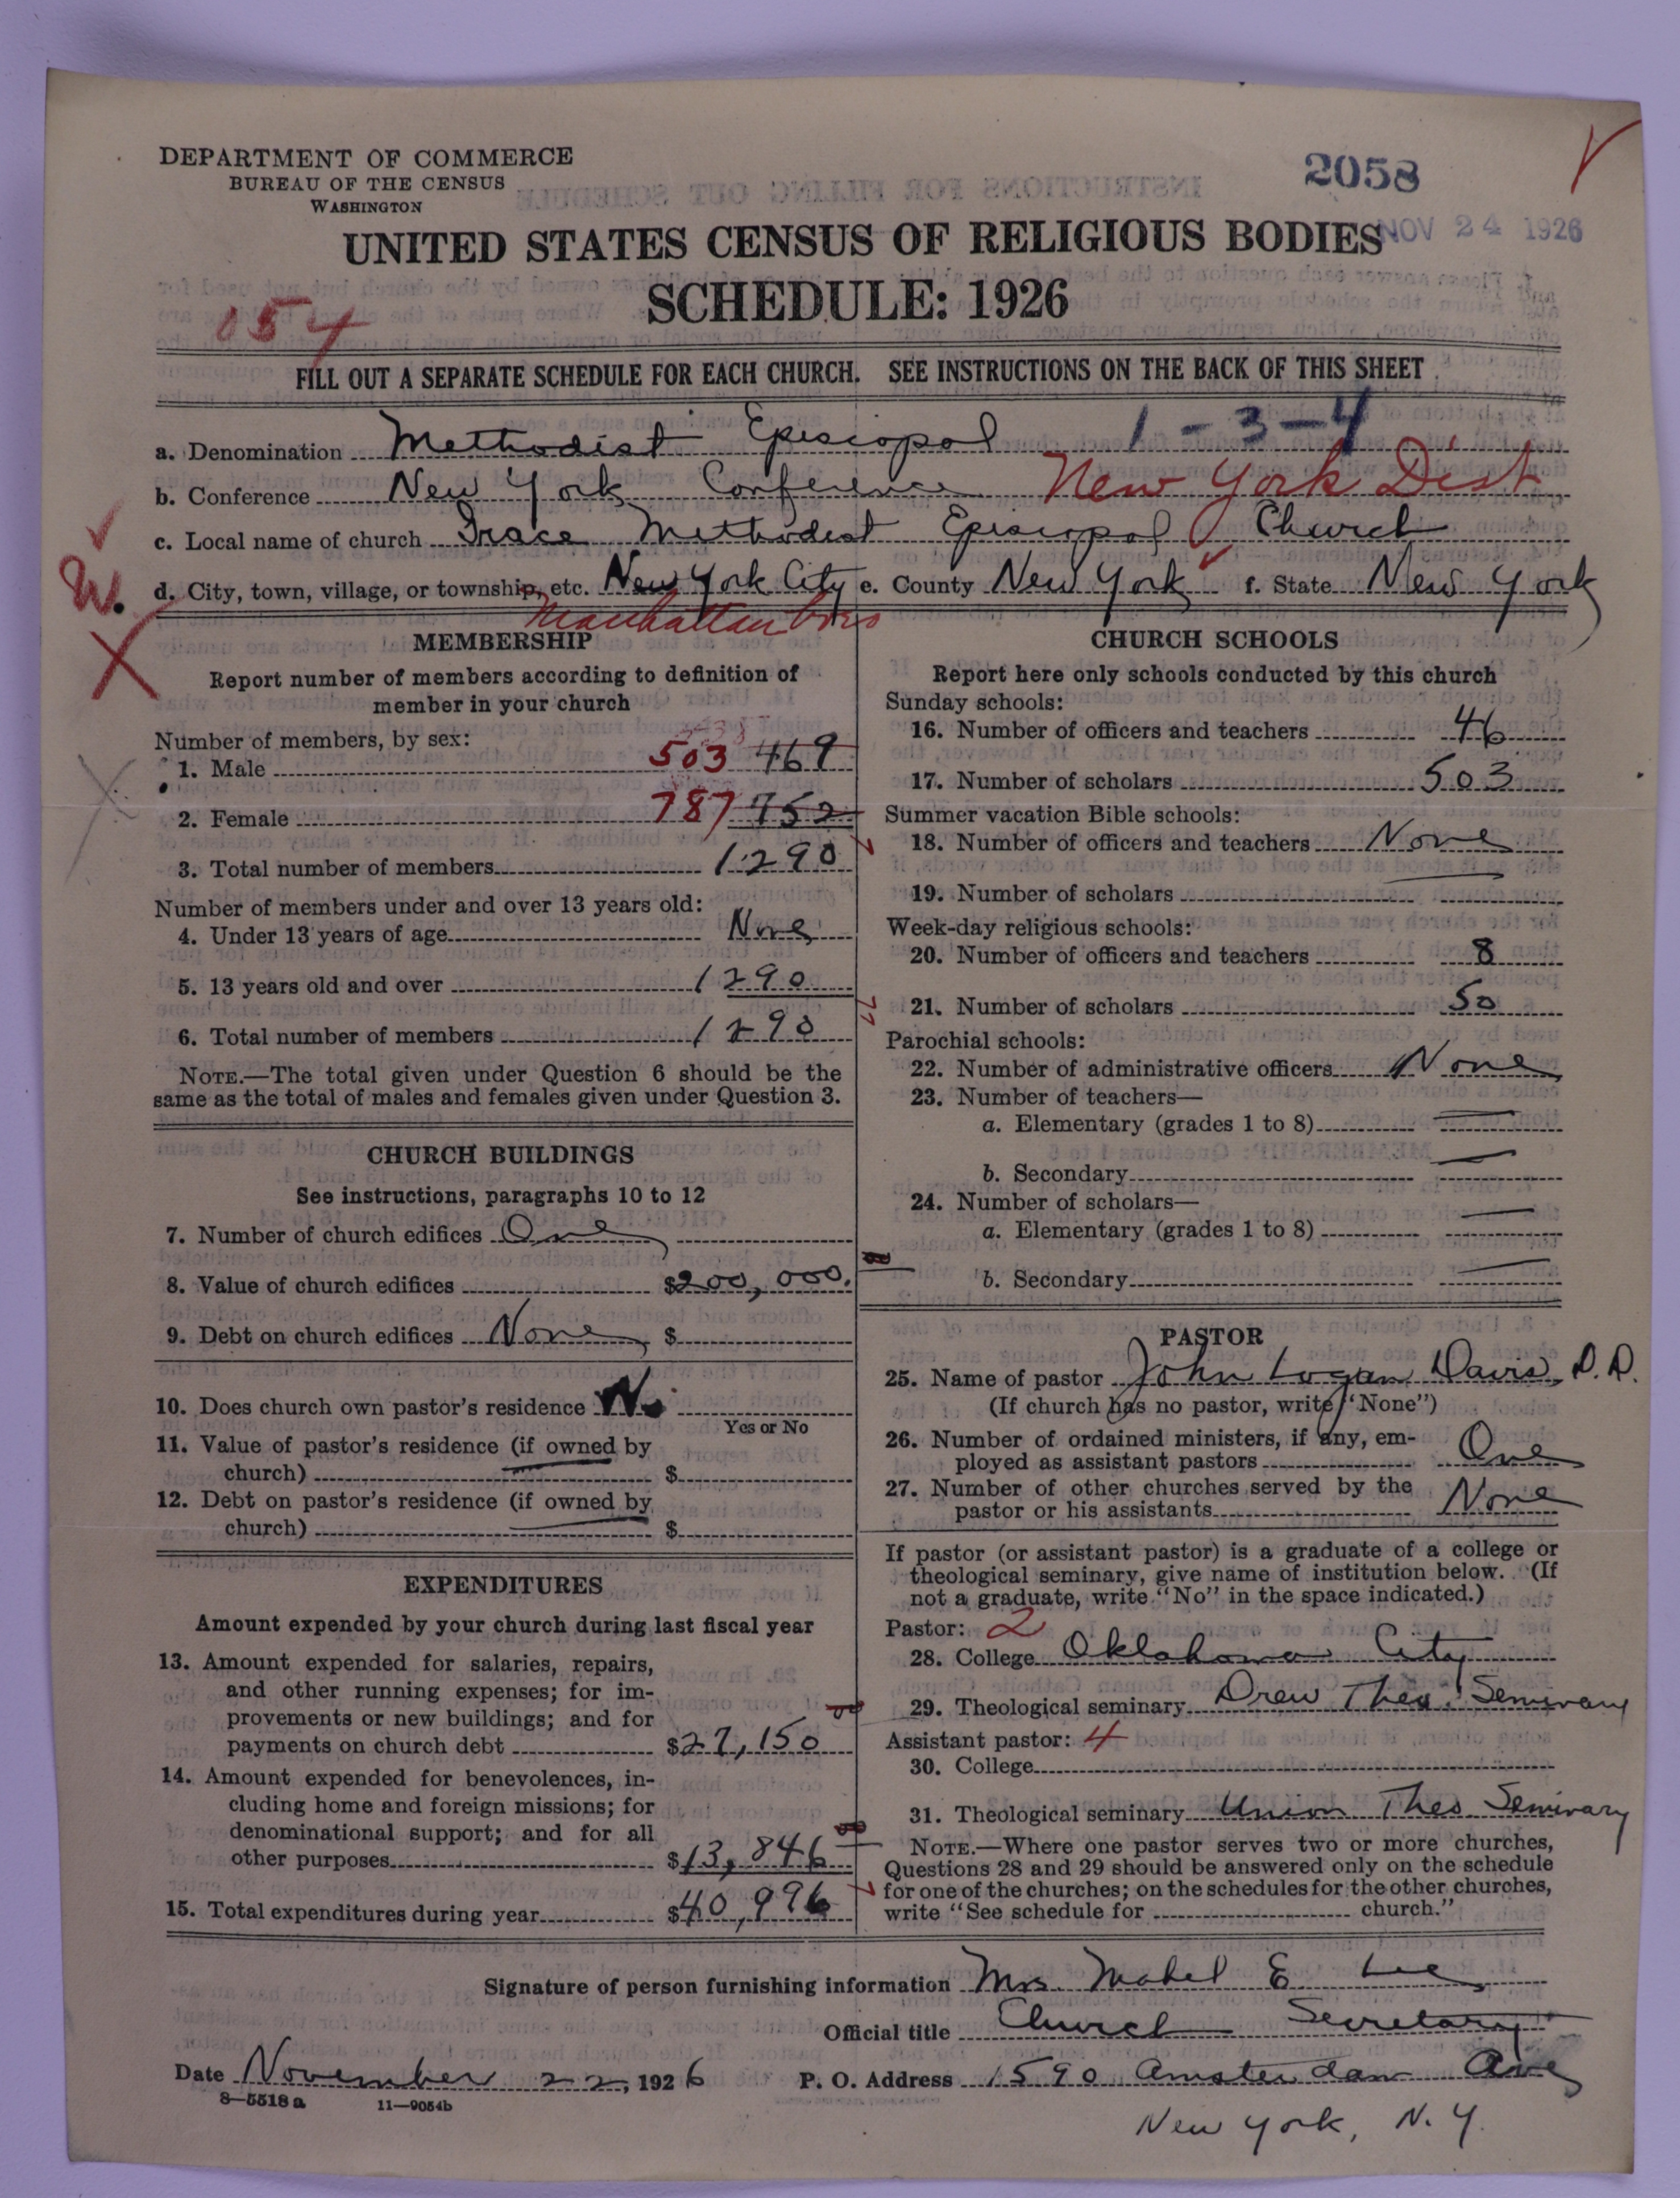 DEPARTMENT OF COMMERCE
BUREAU OF THE CENSUS
WASHINGTON
2058
NOV 24 1926
UNITED STATES CENSUS OF RELIGIOUS BODIES
SCHEDULE: 1926
054
FILL OUT A SEPARATE SCHEDULE FOR EACH CHURCH. SEE INSTRUCTIONS ON THE BACK OF THIS SHEET
a. Denomination Methodist Episcopal 1-3-4
b. Conference New York Conference New York Dist
c. Local name of church Grace Methodist Episcopal Church
W.
d. City, town, village, or township, etc. New York City e. County New York f. State New York
Manhattan boro
X
MEMBERSHIP
Report number of members according to definition of
member in your church
Number of members, by sex:
1. Male 503 469
2. Female 787 752
3. Total number of members 1290
Number of members under and over 13 years old:
4. Under 13 years of age None
5. 13 years old and over 1290
6. Total number of members 1290
NOTE.—The total given under Question 6 should be the
same as the total of males and females given under Question 3.
CHURCH BUILDINGS
See instructions, paragraphs 10 to 12
7. Number of church edifices One
8. Value of church edifices $200,000.
9. Debt on church edifices None $
10. Does church own pastor's residence No
Yes or No
11. Value of pastor's residence (if owned by
church) $
12. Debt on pastor's residence (if owned by
church) $
EXPENDITURES
Amount expended by your church during last fiscal year
13. Amount expended for salaries, repairs,
and other running expenses; for im-
provements or new buildings; and for
payments on church debt $27,150
14. Amount expended for benevolences, in-
cluding home and foreign missions; for
denominational support; and for all
other purposes $13,846
15. Total expenditures during year $40,996
CHURCH SCHOOLS
Report here only schools conducted by this church
Sunday schools:
16. Number of officers and teachers 46
17. Number of scholars 503
Summer vacation Bible schools:
18. Number of officers and teachers None
19. Number of scholars
Week-day religious schools:
20. Number of officers and teachers 8
21. Number of scholars 50
Parochial schools:
22. Number of administrative officers None
23. Number of teachers—
a. Elementary (grades 1 to 8)
b. Secondary
24. Number of scholars—
a. Elementary (grades 1 to 8)
b. Secondary
PASTOR
25. Name of pastor John Logan Davis, D.D.
(If church has no pastor, write "None")
26. Number of ordained ministers, if any, em-
ployed as assistant pastors One
27. Number of other churches served by the
pastor or his assistants None
If pastor (or assistant pastor) is a graduate of a college or
theological seminary, give name of institution below. (If
not a graduate, write "No" in the space indicated.)
Pastor: 2
28. College Oklahoma City
29. Theological seminary Drew Theo. Seminary
Assistant pastor: 4
30. College
31. Theological seminary Union Theo Seminary
NOTE.—Where one pastor serves two or more churches,
Questions 28 and 29 should be answered only on the schedule
for one of the churches; on the schedules for the other churches,
write "See schedule for church."
Signature of person furnishing information Mrs. Mabel E Lee
Official title Church Secretary
Date November 22, 1926 P. O. Address 1590 Amsterdam Ave
8—5518 a 11—9054b
New York, N.Y.